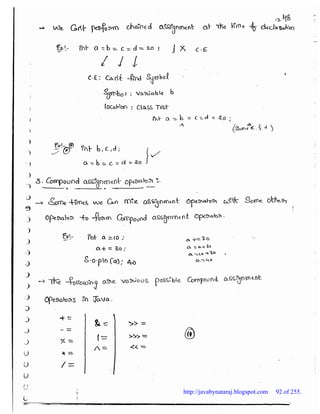 48
→ We Can't perform chained assignment at the time of declaration
Ex:- int a = b = c = d = 20 ; } X C.E
C.E : Can't find Symbol
Symbol : variable b
location : class Test
int a = b = c = d = 20 ;
Ex: ① int b, c, d ;
a = b = c = d = 20
3. Compound assignment operators :-
→ Sometimes we Can mix assignment operator with Some other
operator to form Compound assignment operator.
Ex:- int a = 10 ;
a += 30
a += 30 ;
a = a + 30
a = 10 + 30
S.o.pln (a) ; 40
a = 40
→ The following are various possible Compound assignment
Operators in Java.
+= &= >>=
-= |= >>>= ⑪
%= ^= <<=
*=
/=
http://javabynataraj.blogspot.com 92 of 255.